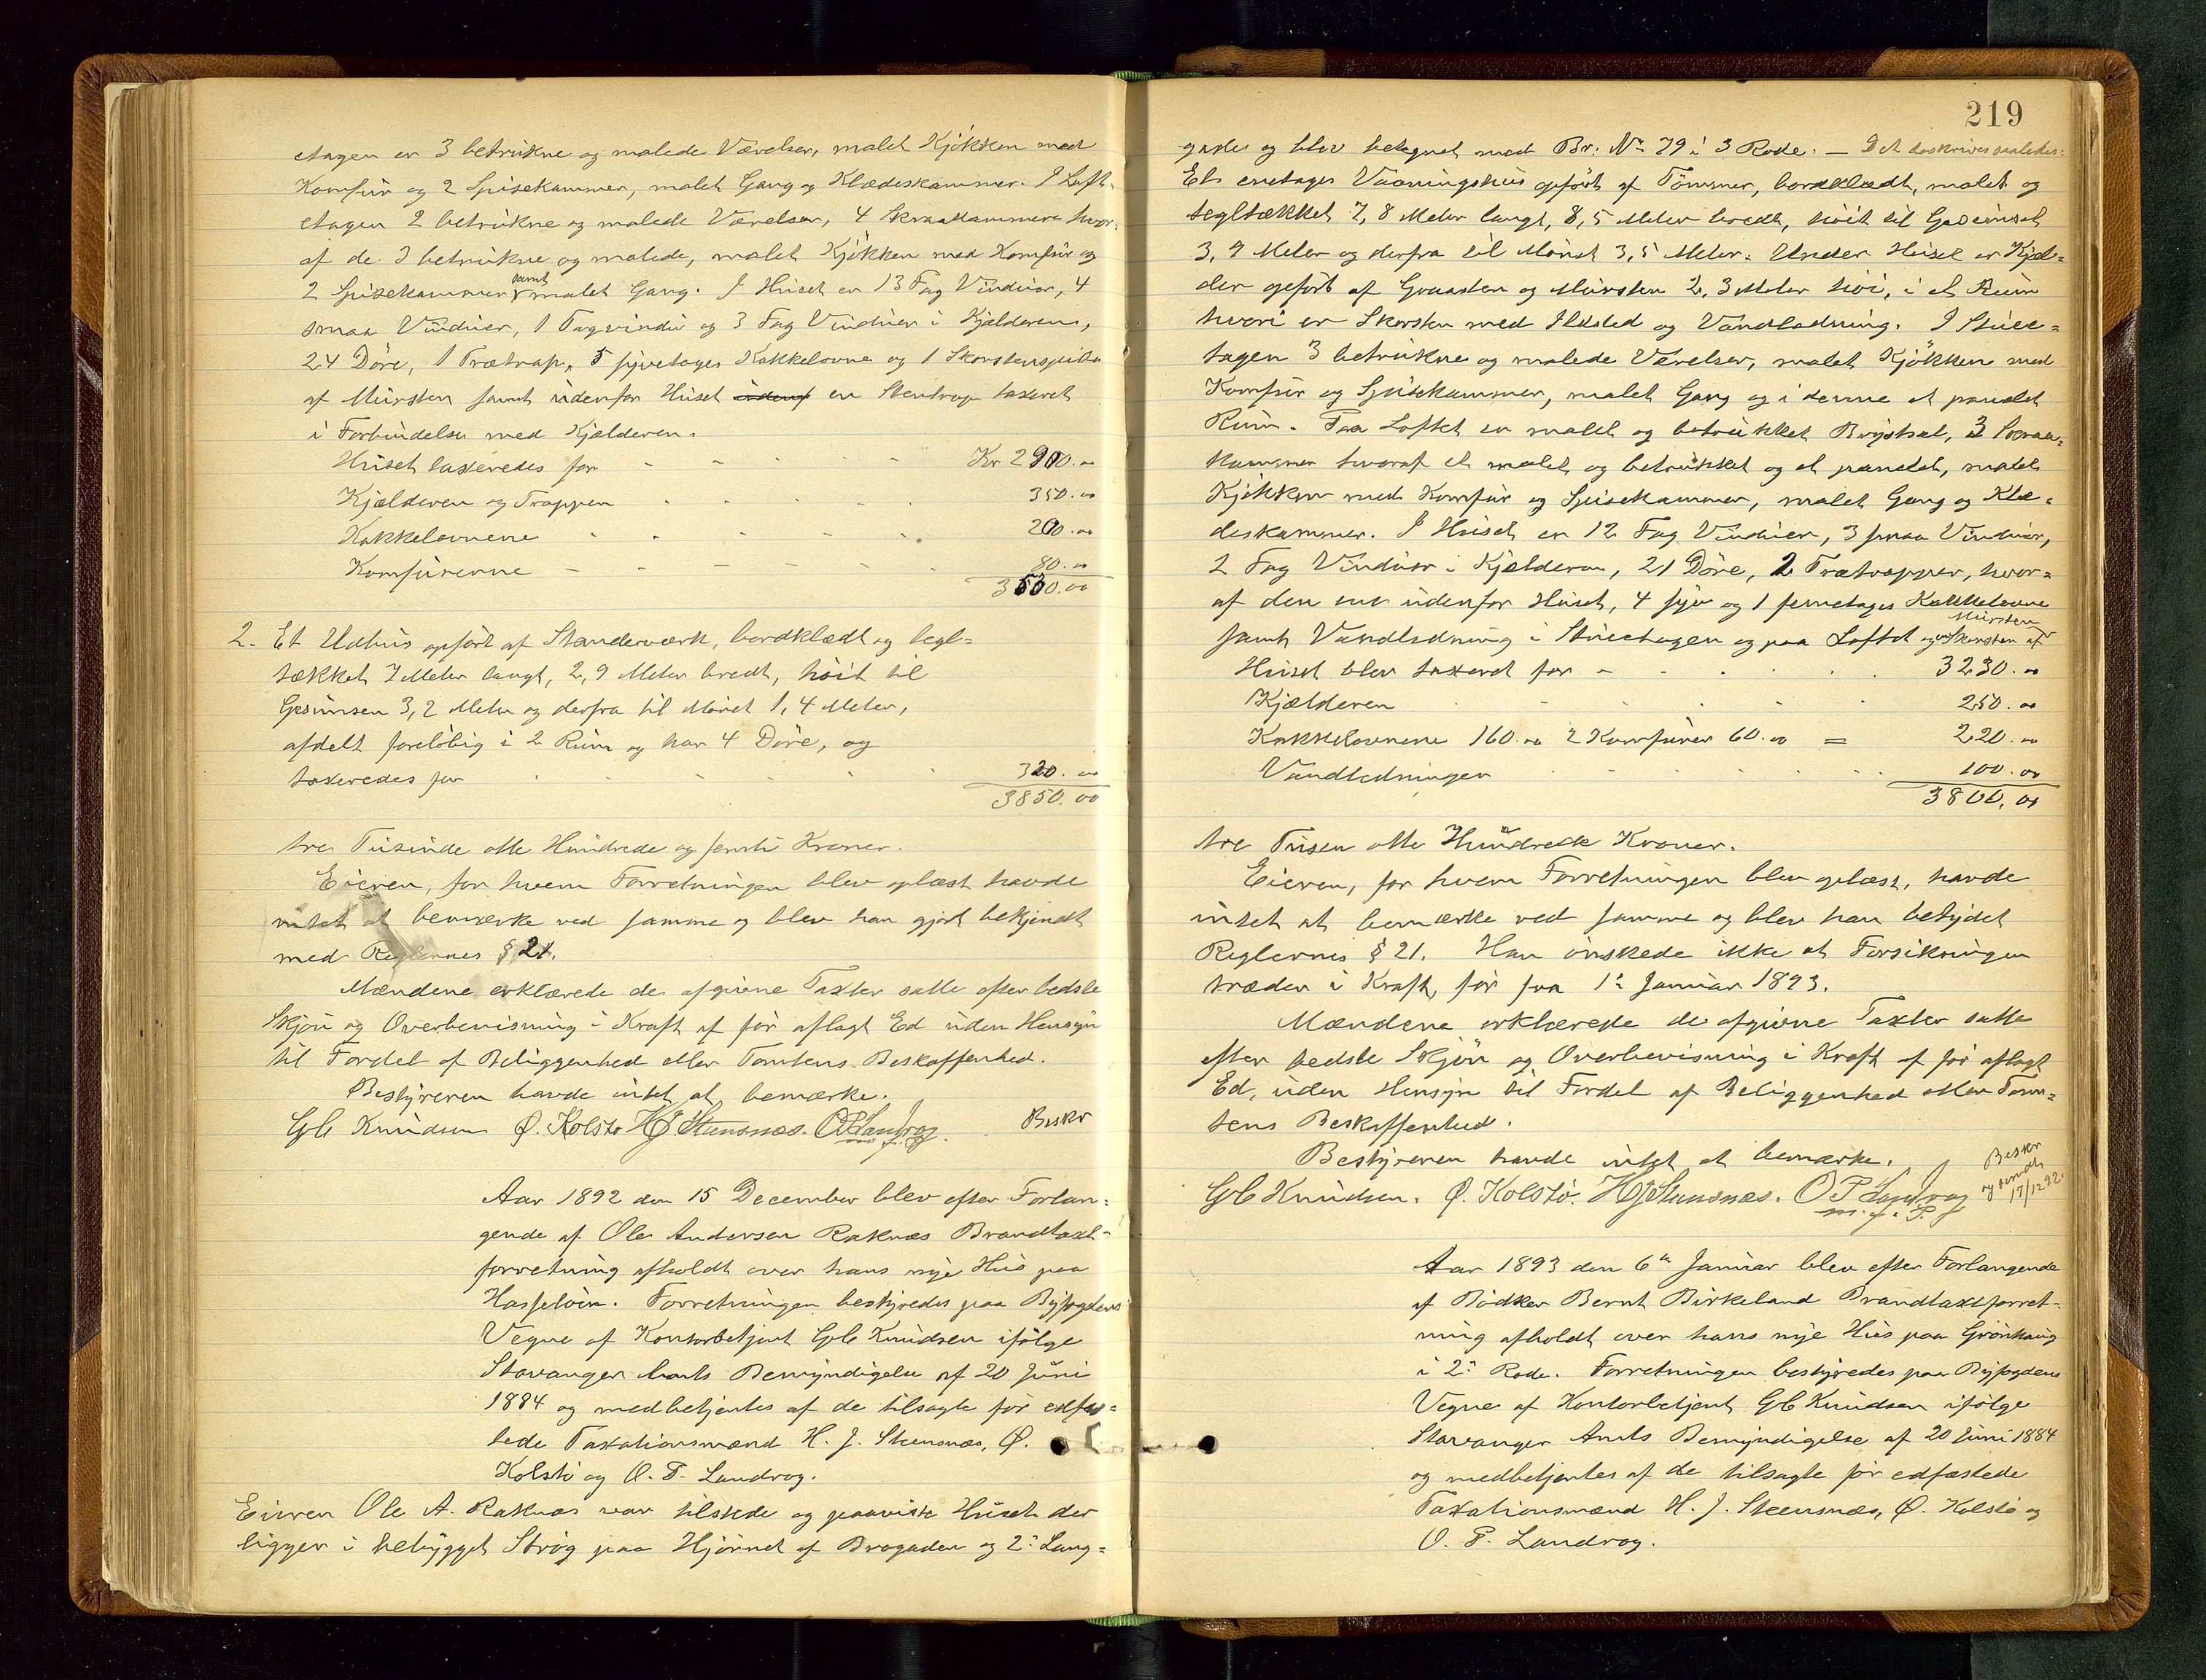 etagen er 3 betrukne og malede Værelser, malet Kjøkken med
Komfur og 2 Spisekammer, malet Gang og Klædeskammer. I Loft-
etagen 2 betrukne og malede Værelser, 4 Skraakammere hvor-
af de 3 betrukne og malede, malet Kjøkken med Komfur og
2 Spisekammer samt malet Gang. I Huset er 13 Fag Vinduer, 4
smaa Vinduer, 1 Tagvindu og 3 Fag Vinduer i Kjælderen,
24 Døre, 1 Trætrap, 5 fyretages Kakkelovne og 1 Skorstenspibe
af Mursten samt udenfor Huset en Stentrap taxeret
i Forbindelse med Kjælderen.
Huset taxeredes for - - - - - Kr 2900.00
Kjælderen og Trappen 350.00
Kakkelovnene 200.00
Komfurerne - - - - - 80.00
3530.00
2. Et Udhus opført af Standerværk, bordklædt og tegl=
tækket 7 Meter langt, 2,9 Meter bredt, høit til
Gesimsen 3,2 Meter og derfra til Mønet 1,4 Meter,
afdelt foreløbig i 2 Rum og har 4 Døre, og
taxeredes for 320.00
3850.00
tre Tusinde otte Hundrede og femti Kroner.
Eieren, for hvem Forretningen blev oplæst havde
intet at bemærke ved samme og blev han gjort bekjendt
med Reglernes § 21.
Mændene erklærede de afgivne Taxter satte efter bedste
Skjøn og Overbevisning i Kraft af før aflagt Ed uden Hensyn
til Fordel af Beliggenhed eller Tomtens Beskaffenhed.
Bestyreren havde intet at bemærke.
Gb Knudsen Ø. Kolstø HJ Steensnæs. OP Landrog Beskr
m. f. P.
Aar 1892 den 15 December blev efter Forlan=
gende af Ole Andersen Raknæs Brandtaxt-
forretning afholdt over hans nye Hus paa
Hasseløen. Forretningen bestyredes paa Byfogdens
Vegne af Kontorbetjent Gb Knudsen ifølge
Stavanger Amts Bemyndigelse af 20 Juni
1884 og medbetjentes af de tilsagte før edfæs=
tede Taxationsmænd H. J. Steensnæs, Ø.
Kolstø og O. P. Landrog.
Eieren Ole A. Raknæs var tilstede og paaviste Huset der
ligger i bebygget Strøg paa Hjørnet af Brogaden og 2: Lang=
219
gades og blev betegnet med Br: No 79 i 3 Rode. — Det beskrives saaledes:
Et enetages Vaaningshus opført af Tømmer, bordklædt, malet og
tegltækket 7,8 Meter langt, 8,5 Meter bredt, høit til Gesimset
3,4 Meter og derfra til Mønet 3,5 Meter. Under Huset er Kjæl=
der opført af Graasten og Mursten 2,3 Meter høi, i et Rum
hvori er Skorsten med Ildsted og Vandledning. I Stuee=
tagen 3 betrukne og malede Værelser, malet Kjøkken med
Komfur og Spisekammer, malet Gang og i denne et panelet
Rum. Paa Loftet er malet og betrukket Brystsal, 3 Skraa=
kammer hvoraf et malet og betrukket og et panelet, malet
Kjøkken med Komfur og Spisekammer, malet Gang og Klæ=
deskammer. I Huset er 12 Fag Vinduer, 3 smaa Vinduer,
2 Fag Vinduer i Kjælderen, 21 Døre, 2 Trætrapper, hvor=
af den ene udenfor Huset, 4 fyr og 1 femetages Kakkelovne
samt Vandledning i Stueetagen og paa Loftet og en Skorsten af Mursten
Huset blev taxeret for - 3230.00
Kjælderen 250.00
Kakkelovnene 160.00 2 Komfurer 60.00 = 220.00
Vandledningen 100.00
3800.00
tre Tusen otte Hundrede Kroner.
Eieren, for hvem Forretningen blev oplæst, havde
intet at bemærke ved samme og blev han betydet
Reglernes § 21. Han ønskede ikke at Forsikringen
træder i Kraft, før fra 1: Januar 1893.
Mændene erklærede de afgivne Taxter satte
efter bedste Skjøn og Overbevisning i Kraft af før aflagt
Ed, uden Hensyn til Fordel af Beliggenhed eller Tom=
tens Beskaffenhed.
Bestyreren havde intet at bemærke.
Gb Knudsen. Ø. Kolstø. HJ Steensnæs. O P Landrog
m. f. P.
Beskr
og sendt
17/12 92.
Aar 1893 den 6te Januar blev efter Forlangende
af Bødker Bernt Birkeland Brandtaxtforret-
ning afholdt over hans nye Hus paa Grønhaug
i 2: Rode. Forretningen bestyredes paa Byfogdens
Vegne af Kontorbetjent Gb Knudsen ifølge
Stavanger Amts Bemyndigelse af 20 Juni 1884
og medbetjentes af de tilsagte før edfæstede
Taxationsmænd H. J. Steensnæs, Ø. Kolstø og
O. P. Landrog.